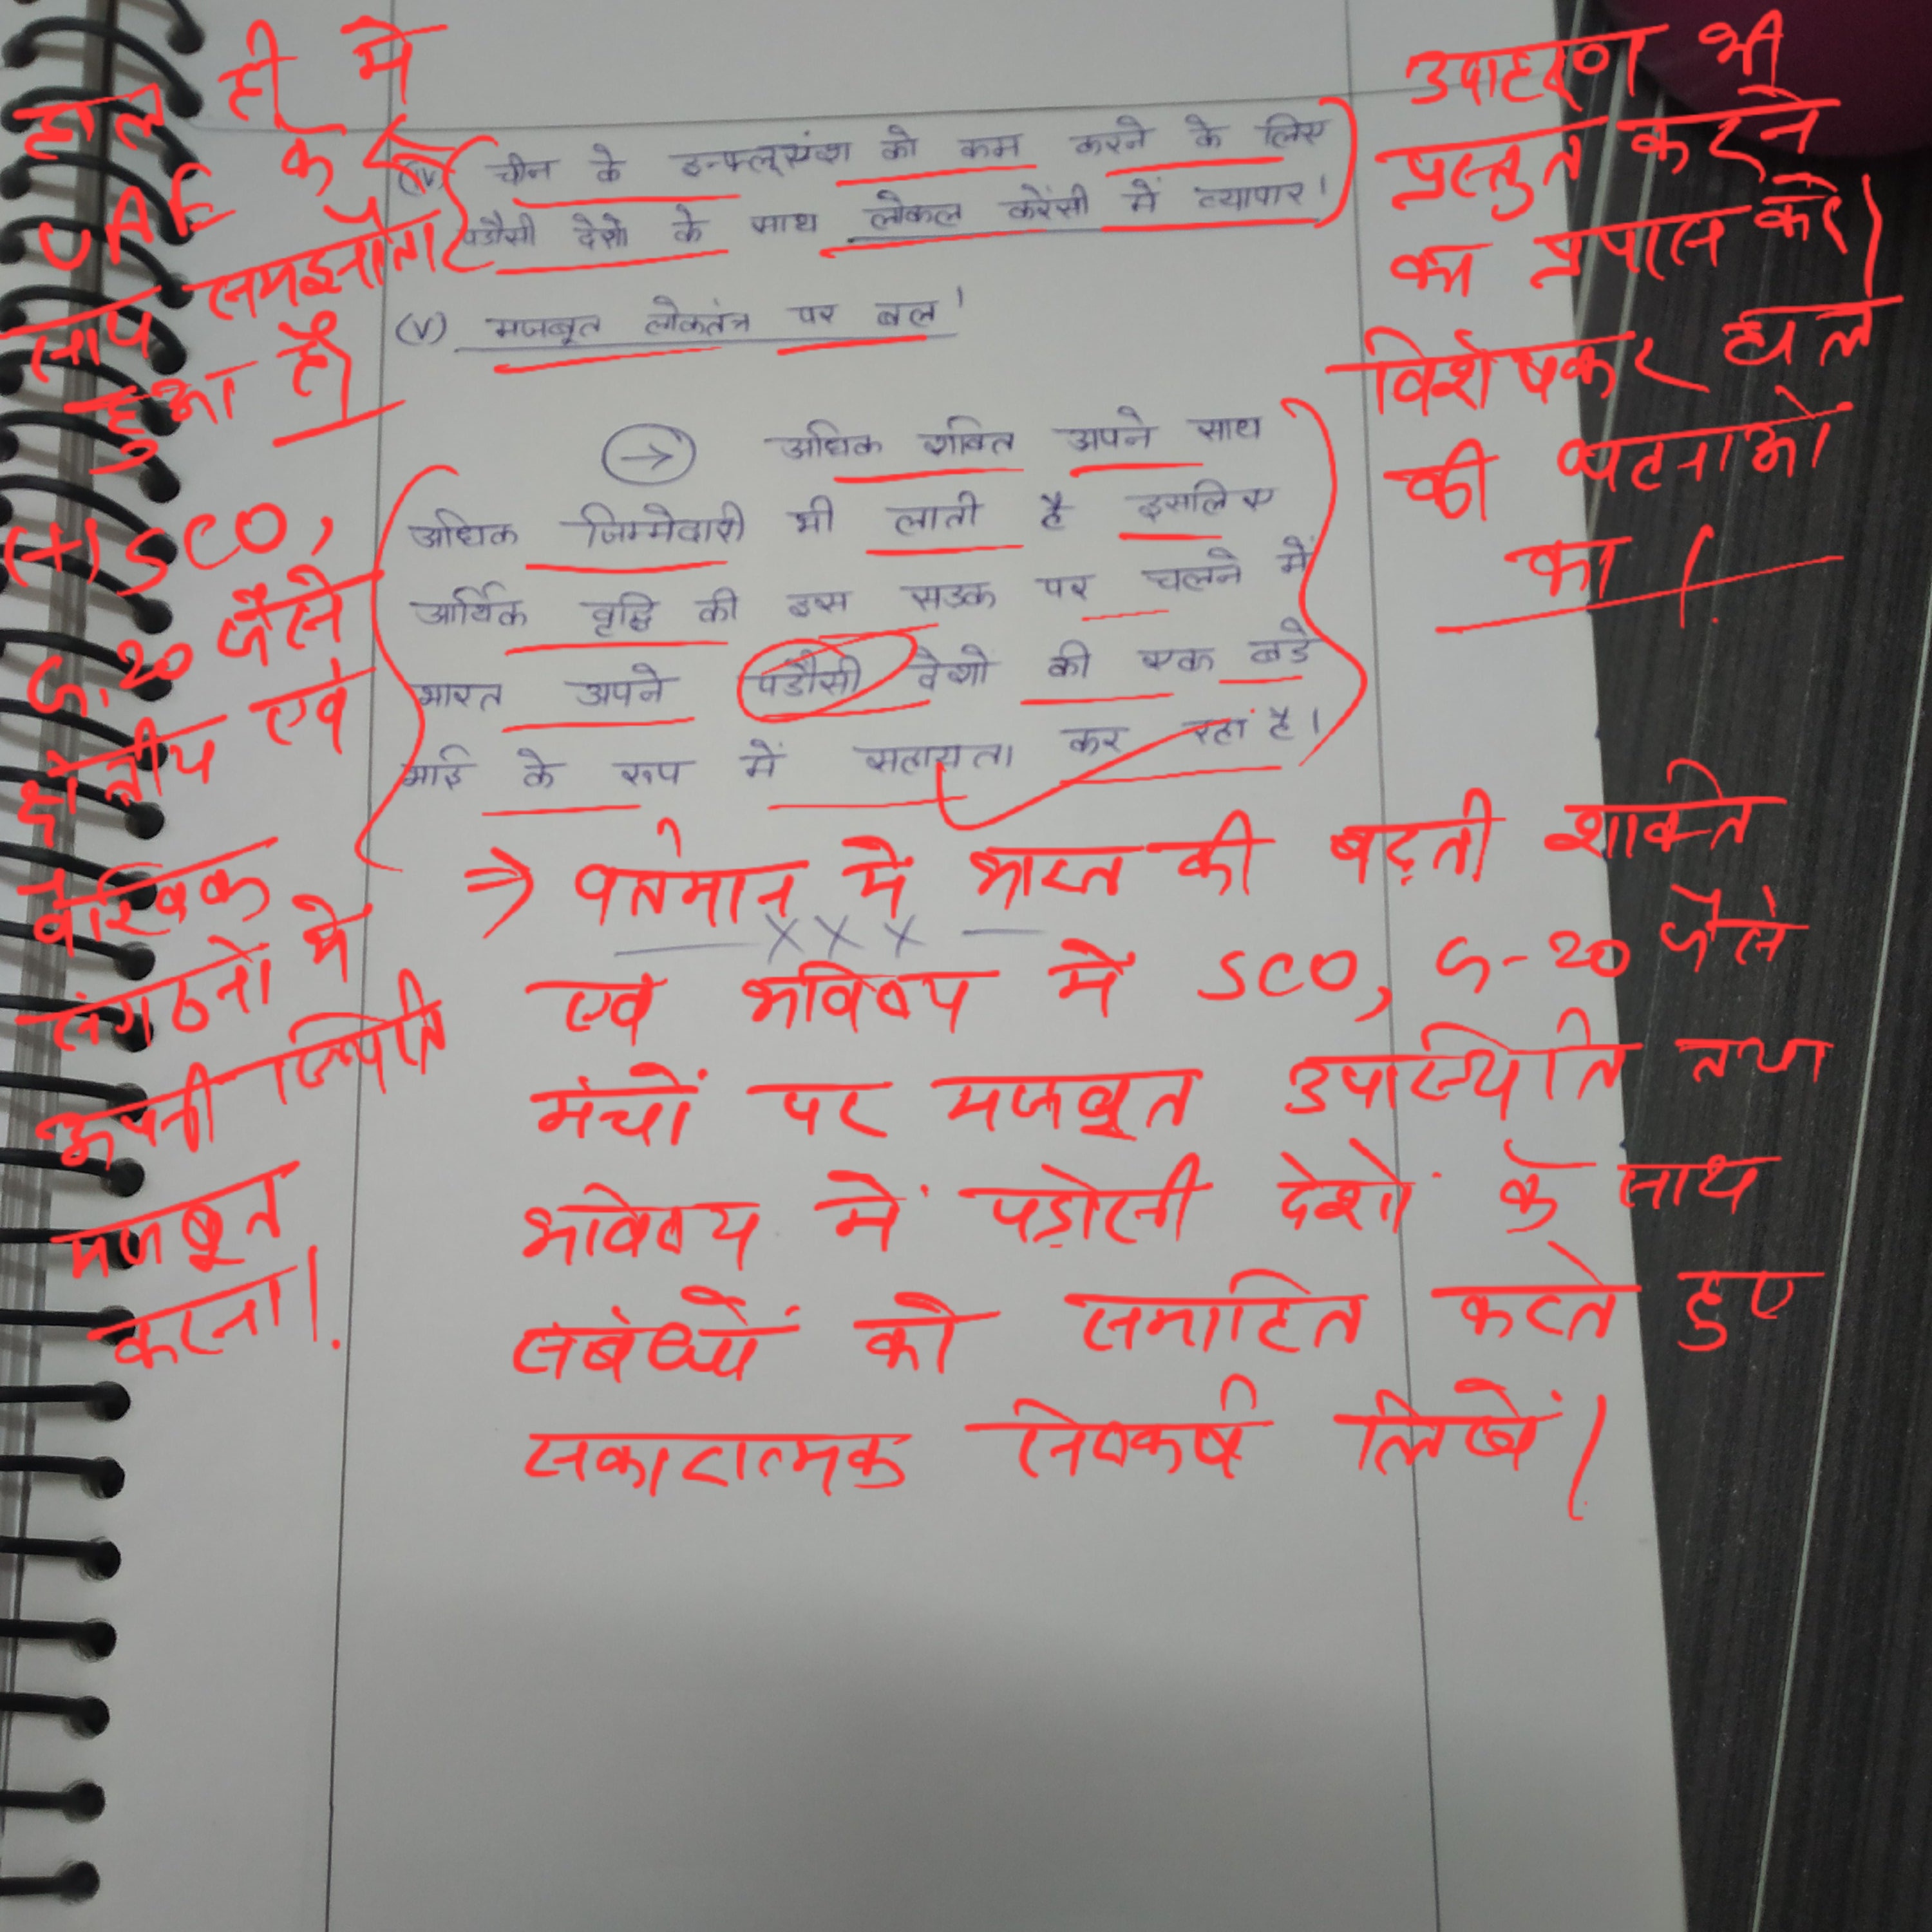 हाल ही में
UAE के
साथ समझौता
हुआ है।
(iv) चीन के इन्फ्लूएंश को कम करने के लिए
पडौसी देशो के साथ लोकल करेंसी में व्यापार।
(v) मजबूत लोकतंत्र पर बल।
उदाहरण भी
प्रस्तुत करने
का प्रयास करें।
विशेषकर हाल
की घटनाओं
का।
→ अधिक शक्ति अपने साथ
अधिक जिम्मेदारी भी लाती है इसलिए
आर्थिक वृद्धि की इस सडक पर चलने में
भारत अपने पडौसी देशो की एक बडे
भाई के रूप में सहायता कर रहा है।
(+) SCO,
G.20 जैसे
क्षेत्रीय एवं
वैश्विक
संगठनों में
अपनी स्थिति
मजबूत
करना।
⇒ वर्तमान में भारत की बढ़ती शक्ति
xxx
एवं भविष्य में SCO, G-20 जैसे
मंचों पर मजबूत उपस्थिति तथा
भविष्य में पड़ोसी देशों के साथ
संबंधों को समाहित करते हुए
सकारात्मक निष्कर्ष लिखें।